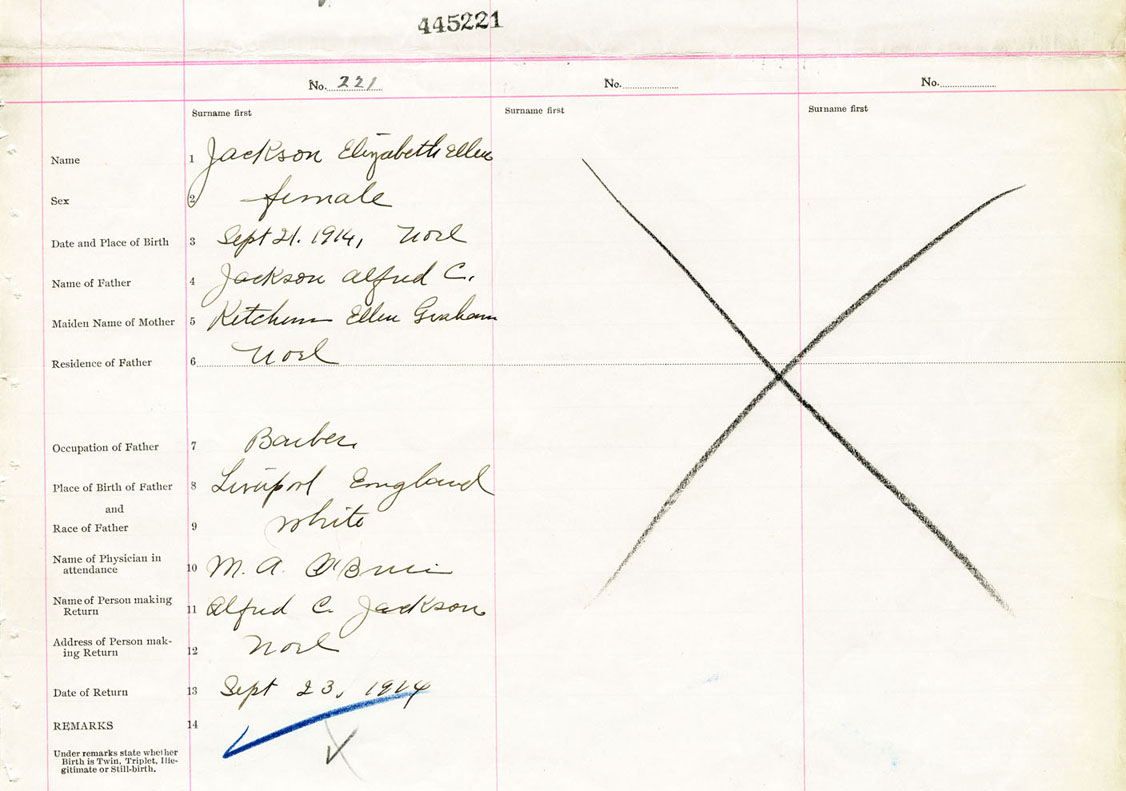 445221
No. 221 No. No.
Surname first Surname first Surname first
Name 1 Jackson Elizabeth Ellen
Sex 2 female
Date and Place of Birth 3 Sept 21. 1914, Noel
Name of Father 4 Jackson Alfred C.
Maiden Name of Mother 5 Ketchum Ellen Graham
Residence of Father 6 Noel
Occupation of Father 7 Barber
Place of Birth of Father 8 Liverpool England
and
Race of Father 9 white
Name of Physician in
attendance 10 M. A. O'Brien
Name of Person making
Return 11 Alfred C. Jackson
Address of Person mak-
ing Return 12 Noel
Date of Return 13 Sept 23, 1914
REMARKS 14
Under remarks state whether
Birth is Twin, Triplet, Ille-
gitimate or Still-birth.